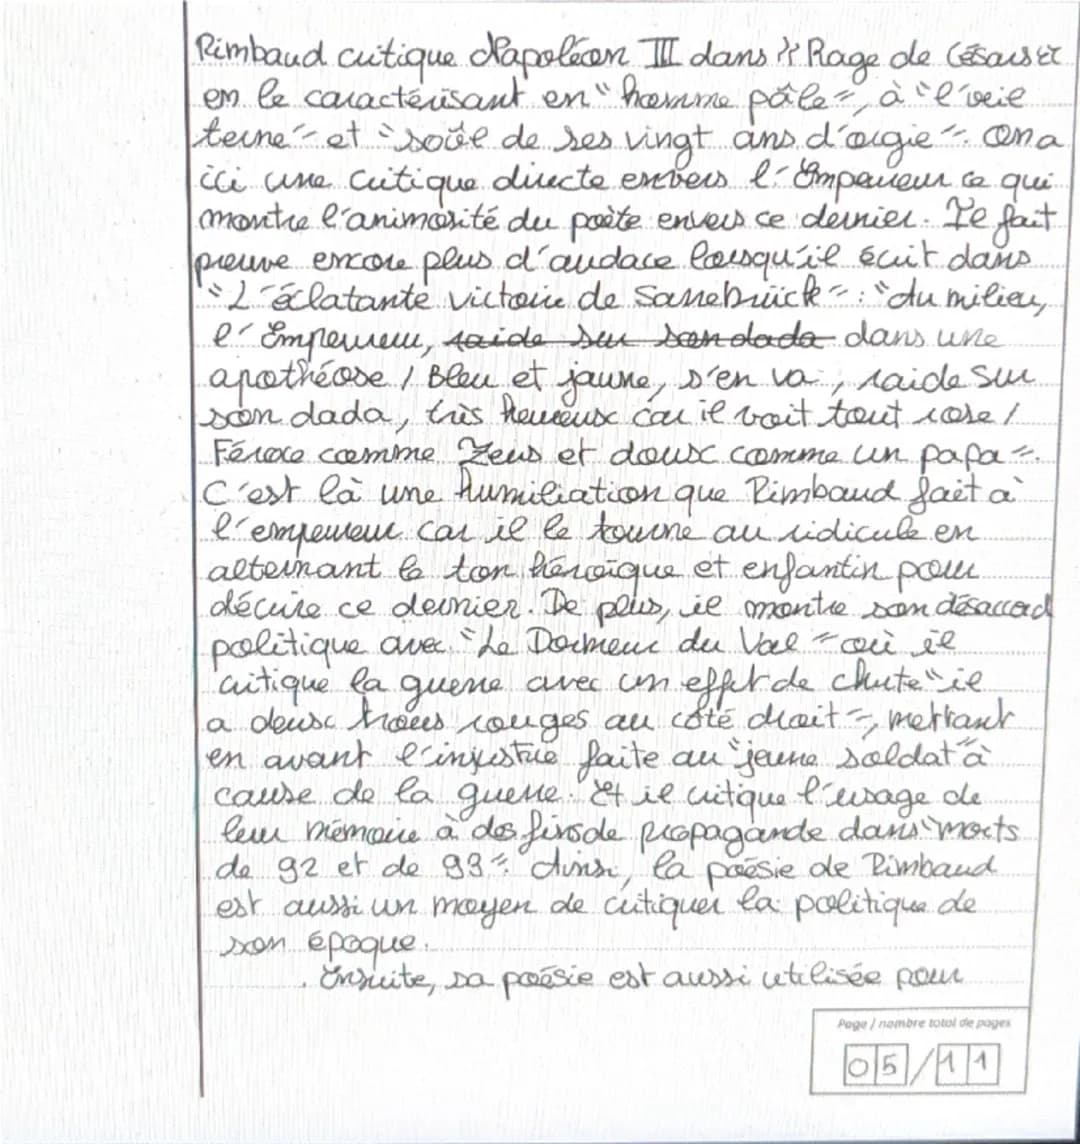 Rimbaud critique Napoléon III dans "Rage de Césars"
en le caractérisant en "homme pâle", à "l'œil
terne" et "soûl de ses vingt ans d'orgie". On a
ici une critique directe envers l'Empereur ce qui
montre l'animosité du poète envers ce dernier. Il fait
preuve encore plus d'audace lorsqu'il écrit dans
"L'éclatante victoire de Sarrebrück" : "du milieu,
l'Empereur, raide sur son dada dans une
apothéose / Bleu et jaune, s'en va, raide sur
son dada, très heureux car il voit tout rose /
Féroce comme Zeus et doux comme un papa".
C'est là une humiliation que Rimbaud fait à
l'empereur car il le tourne au ridicule en
alternant le ton héroïque et enfantin pour
décrire ce dernier. De plus, il montre son désaccord
politique avec "Le Dormeur du Val" où il
critique la guerre avec un effet de chute "il
a deux trous rouges au côté droit", mettant
en avant l'injustice faite au "jeune soldat" à
cause de la guerre. Et il critique l'usage de
leur mémoire à des fins de propagande dans "morts
de 92 et de 93". Ainsi, la poésie de Rimbaud
est aussi un moyen de critiquer la politique de
son époque.
Ensuite, sa poésie est aussi utilisée pour
Page / nombre total de pages
05/11